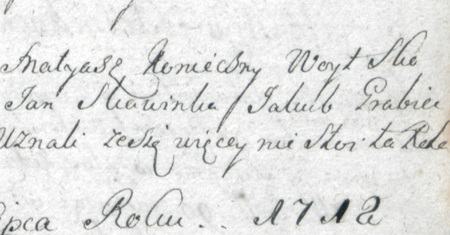 Matyasz Konieczny Woyt
Jan Skawinka Jakub Grabiec
Uznali ze się więcey nie
lipca Roku .. 1712